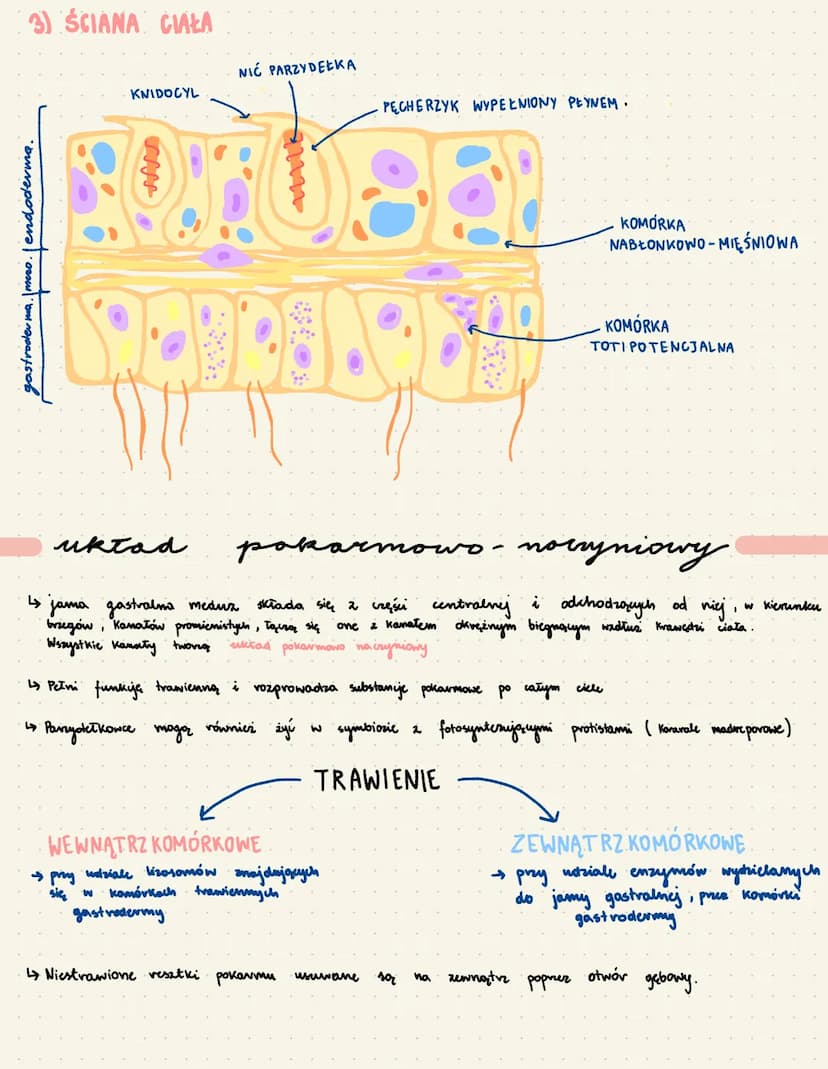 3) ŚCIANA CIAŁA
NIĆ PARZYDEŁKA
KNIDOCYL
PĘCHERZYK WYPEŁNIONY PŁYNEM.
endoderma.
mzo.
gastroderma.
KOMÓRKA
NABŁONKOWO-MIĘŚNIOWA
KOMÓRKA
TOTIPOTENCJALNA
układ pokarmowo-naczyniowy
↳ jama gastralna meduz składa się z części centralnej i odchodzących od niej, w kierunku
brzegów, kanałów promienistych, łączą się one z kanałem okrężnym biegnącym wzdłuż krawędzi ciała.
Wszystkie kanały tworzą układ pokarmowo naczyniowy
↳ Pełni funkcję trawienną i rozprowadza substancje pokarmowe po całym ciele
↳ Parzydełkowce mogą również żyć w symbiozie z fotosyntezującymi protistami (koralowce madreporowe)
TRAWIENIE
WEWNĄTRZKOMÓRKOWE
→ przy udziale lizosomów znajdujących
się w komórkach trawiennych
gastrodermy
ZEWNĄTRZKOMÓRKOWE
→ przy udziale enzymów wydzielanych
do jamy gastralnej, przez komórki
gastrodermy
↳ Niestrawione resztki pokarmu usuwane są na zewnątrz poprzez otwór gębowy.